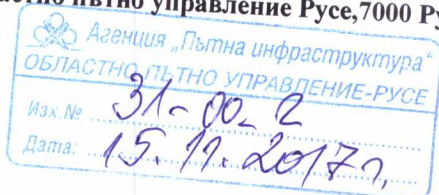 пътно управление Русе,7000
Агенция „Пътна инфраструктура"
ОБЛАСТНО ПЪТНО УПРАВЛЕНИЕ-РУСЕ
Изх.№ 31-00-2
Дата: 15.11.2017г.